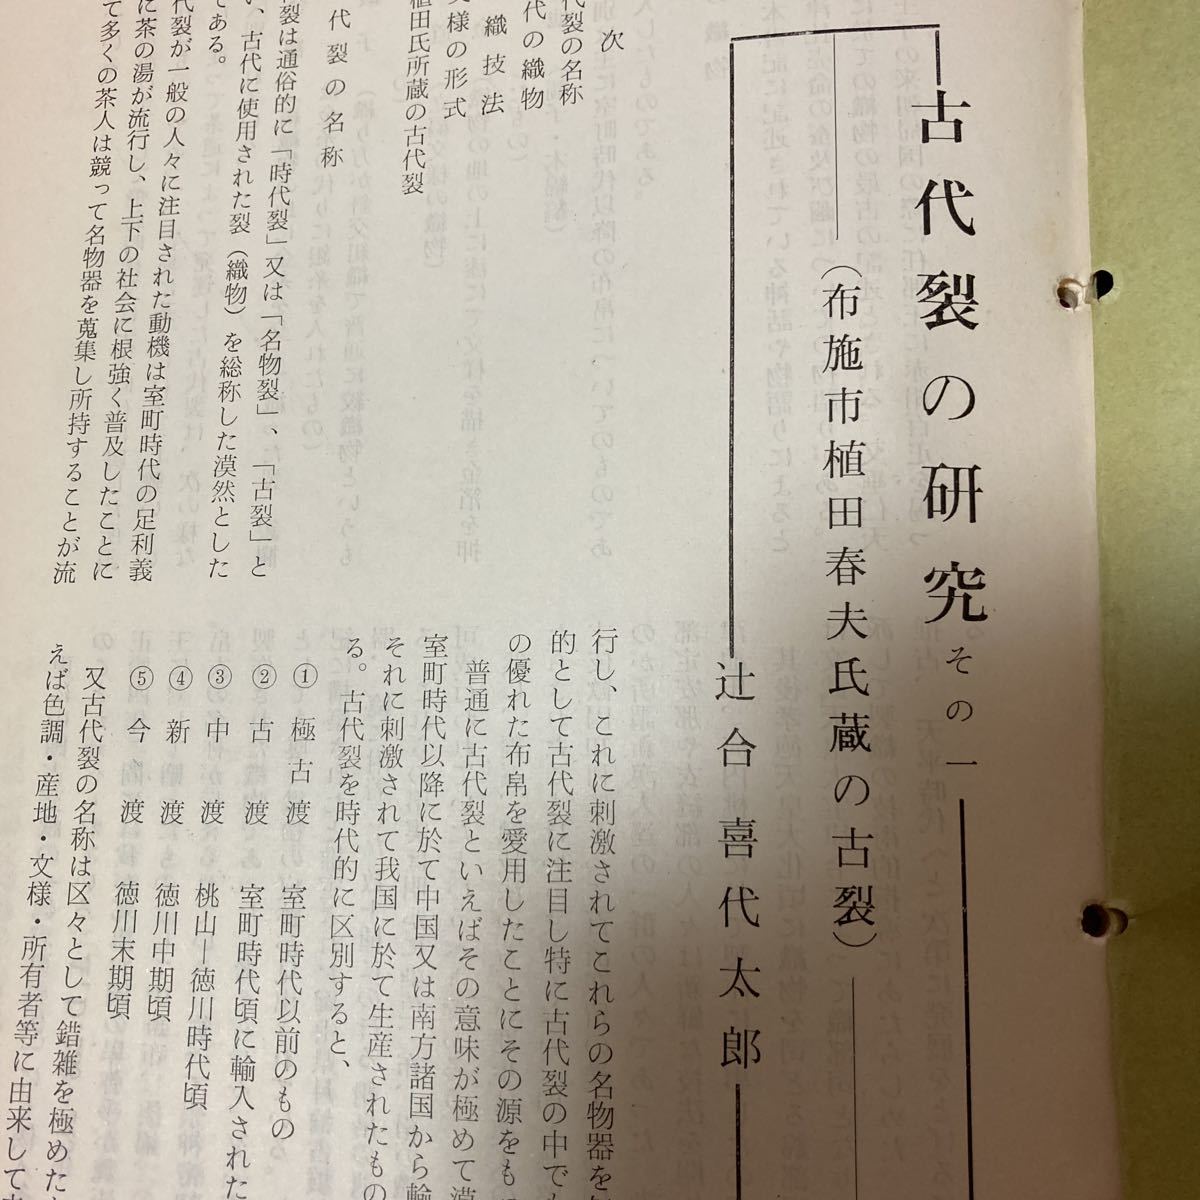 古代裂の研究 その一
(布施市植田春夫氏蔵の古裂)
辻合喜代太郎
次
代裂の名称
代の織物
織技法
文様の形式
植田氏所蔵の古代裂
代裂の名称
裂は通俗的に「時代裂」又は「名物裂」、「古裂」と
い、古代に使用された裂(織物)を総称した漠然とした
である。
代裂が一般の人々に注目された動機は室町時代の足利義
に茶の湯が流行し、上下の社会に根強く普及したことに
て多くの茶人は競って名物器を蒐集し所持することが流
行し、これに刺激されてこれらの名物器を
的として古代裂に注目し特に古代裂の中でも
の優れた布帛を愛用したことにその源をも
普通に古代裂といえばその意味が極めて漠
室町時代以降に於て中国又は南方諸国から輸
それに刺激されて我国に於て生産されたもの
る。古代裂を時代的に区別すると、
① 極古渡 室町時代以前のもの
② 古渡 室町時代頃に輸入された
③ 中渡 桃山―徳川時代頃
④ 新渡 徳川中期頃
⑤ 今渡 徳川末期頃
又古代裂の名称は区々として錯雑を極めた
えば色調・産地・文様・所有者等に由来して